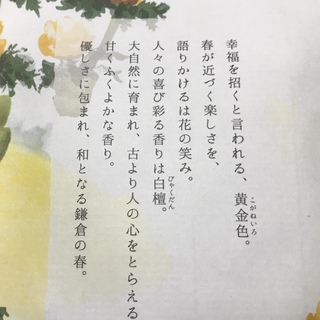 幸福を招くと言われる、黄金色。
こがねいろ
春が近づく楽しさを、
語りかけるは花の笑み。
人々の喜び彩る香りは白檀。
びゃくだん
大自然に育まれ、古より人の心をとらえる
甘くふくよかな香り。
優しさに包まれ、和となる鎌倉の春。